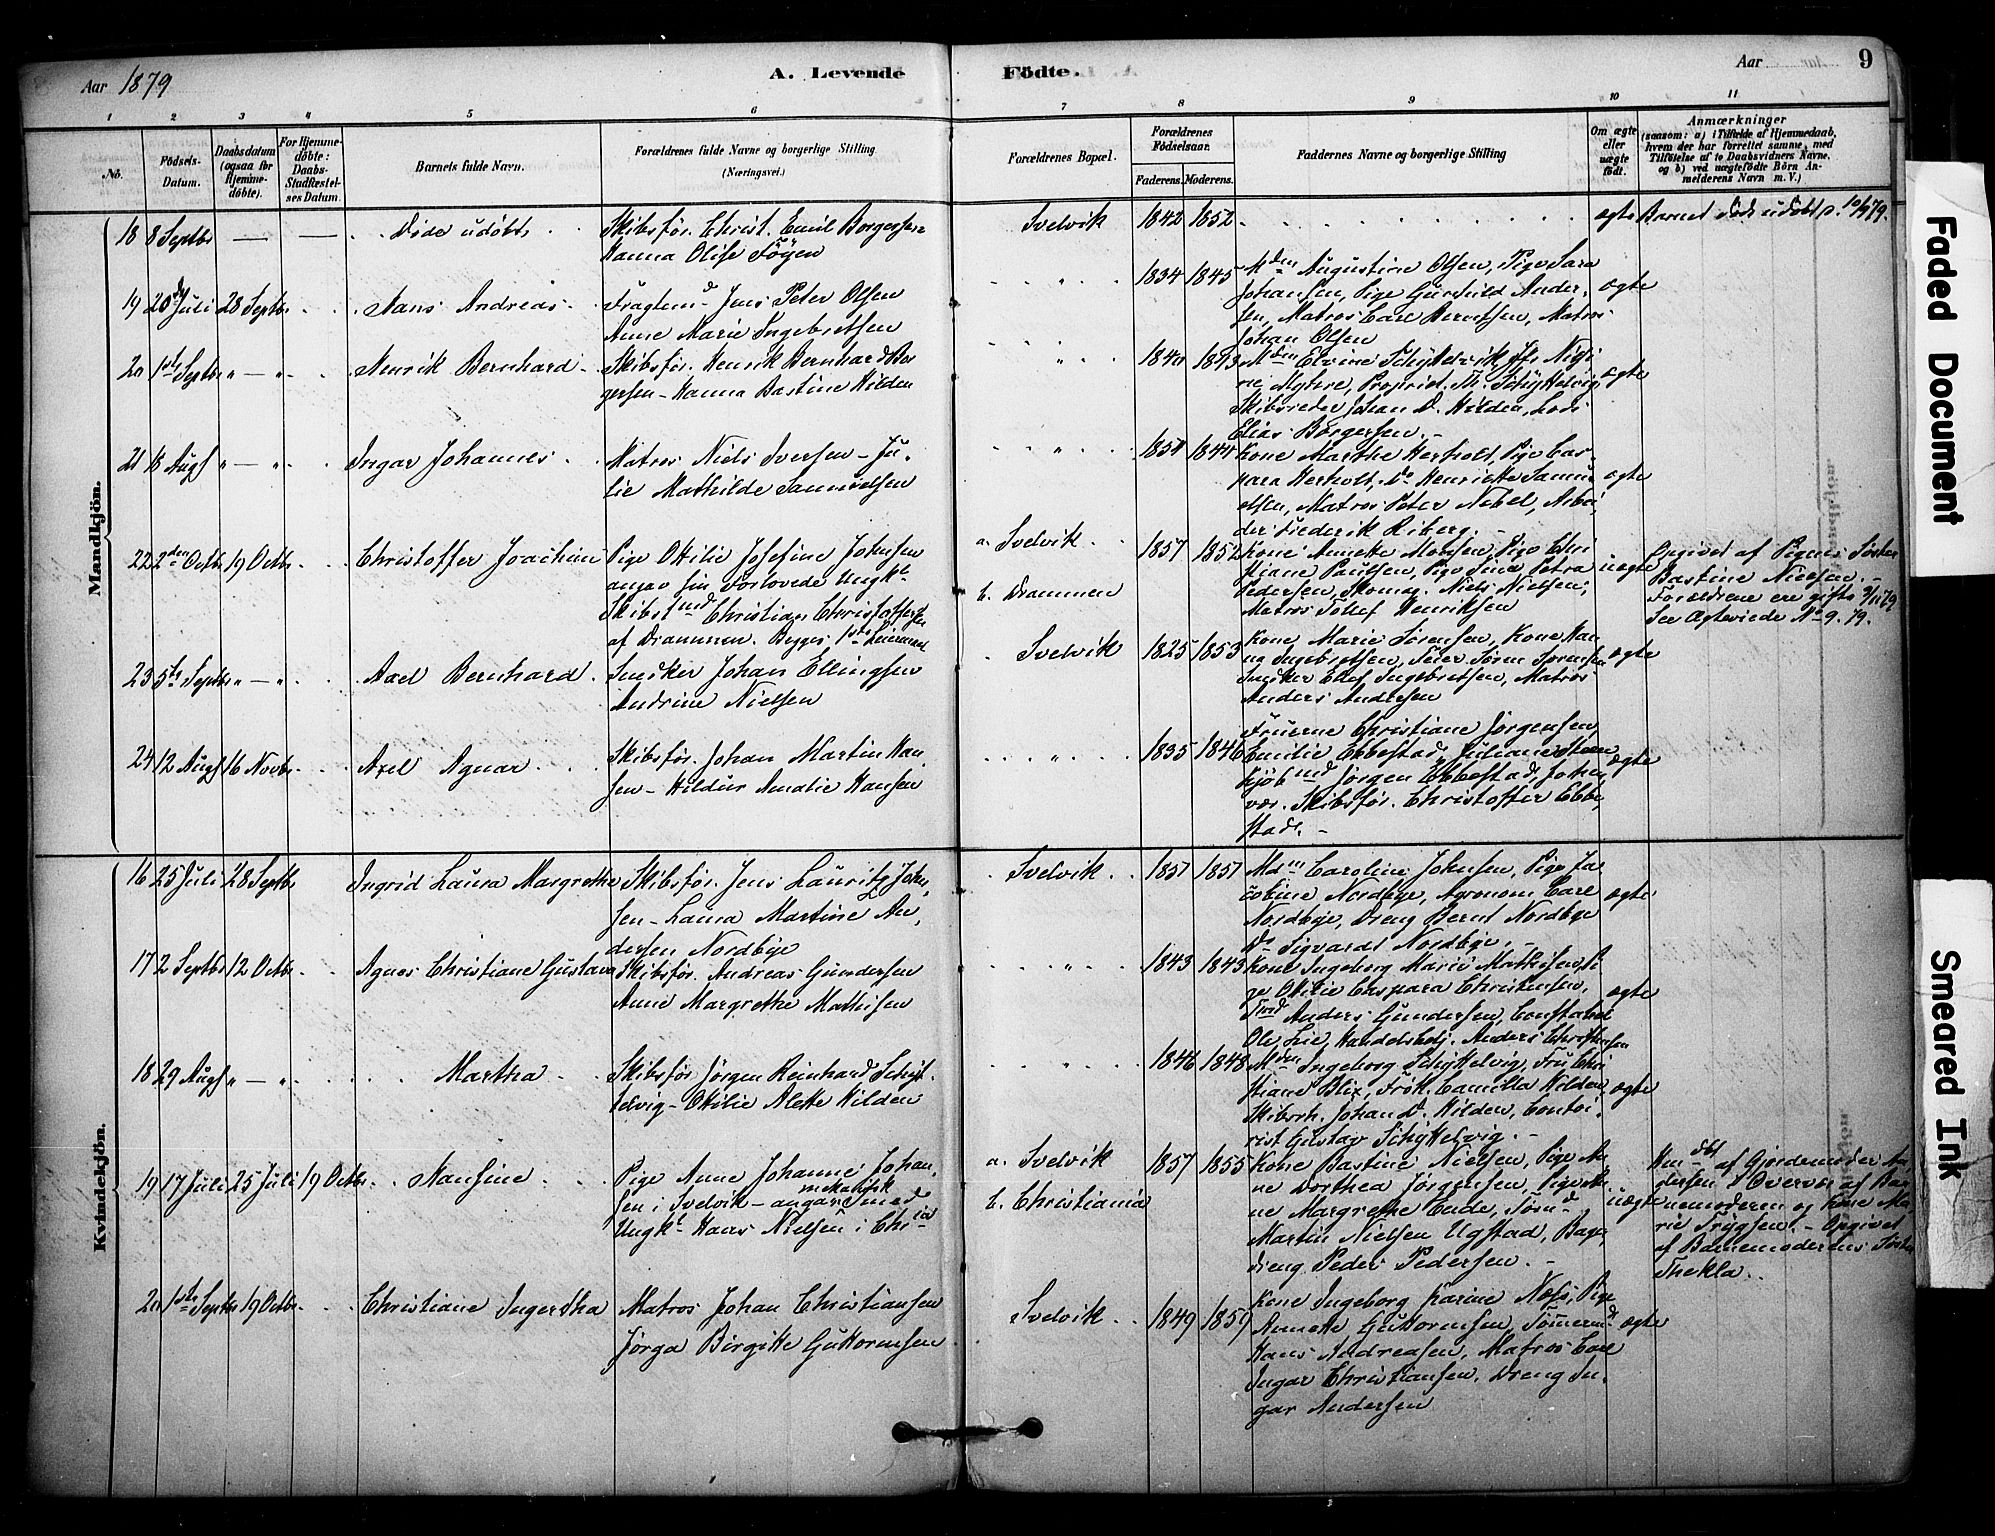 Aar 1879
A. Levende
Födte.
Aar
9
1 2 3 4 5 6 7 8 9 10 11
No.
Födsels-
Datum.
Daabsdatum
(ogsaa for
Hjemme-
döbte).
For Hjemme-
döbte:
Daabs-
Stadfæstel-
ses Datum.
Barnets fulde Navn.
Forældrenes fulde Navne og borgerlige Stilling
(Næringsvei.)
Forældrenes Bopæl.
Forældrenes
Födselsaar.
Faderens. Moderens.
Faddernes Navne og borgerlige Stilling
Om ægte
eller
uægte
født.
Anmærkninger
(saasom: a) i Tilfælde af Hjemmedaab,
hvem der har forrettet samme, med
Tilföielse af to Daabsvidners Navne,
og b) ved uægtefödte Börn An-
melderens Navn m. V.)
Mandkjön.
18 8 Septbr — — Döde udöbt
Skibsfør. Christ. Emil Borgersen
Hanna Olise Föyen
Svelvik 1842 1852
ægte Barnet död udöbt
19 20de Juli 28 Septbr Hans Andreas
Fragtmd Jens Peter Olsen
Anne Marie Ingebretsen
" 1834 1845
Mdm Augustine Olsen, Pige Sara
Johansen, Pige Gunhild Ander-
sen, Matros Carl Berntsen, Matros
Johan Olsen
ægte
20 1ste Septbr " — " Henrik Bernhard
Skibsfør. Henrik Bernhard Bor
gersen — Hanna Bastine Hilden
"
Skibsreder Johan D. Hilden,
Elias Borgersen. —
ægte
21 18 Augs " — " Ingar Johannes
Matros Niels Iversen — Ju-
lie Mathilde Samuelsen
" 1844
Kone Marthe Herholt, Pige Cas-
para Herholt, Do Henriette Samu
elsen, Matros Peter Nebel, Arbei
der Frederik Riberg. —
ægte
22 2den Octbr 19 Octbr Christoffer Joachim
Pige Ottilie Josefine Johnsen
angav sin Forlovede Ungk.
Skibstmd Christian Christoffersen
af Drammen.
a. Svelvik
b. Drammen
1857 1852
Kone Annette Madsen, Pige Chri
stiane Paulsen, Pige Sina Petra
Pedersen, Skomag. Niels Nielsen,
Matros Tollef Henriksen
uægte
Opgivet af Pigens Söster
Bastine Nielsen. —
Forældrene ere gifte 9/11 79
See Ægteviede No 9. 79.
23 5te Septbr " — " Axel Bernhard
Snedker Johan Ellingsen
Andrine Nielsen
Svelvik 1825 1853
Kone Marie Sörensen, Kone Han
na Ingebretsen, Feier Sören Sörensen
Snedker Ellef Ingebretsen, Matros
Anders Andersen
ægte
24 12 Augs 16 Novbr Axel Agnar
Skibsfør. Johan Martin Han
sen — Hildur Amalie Hansen
" 1835 1846
Fruerne Christiane Jörgensen
Emilie Ebbestad, Juliane Steen
Kjöbmd Jörgen Ebbestad, Johan
Skibsfør. Christoffer Ebbe
stad. —
ægte
Kvindekjön.
16 25 Juli 28 Septbr Ingrid Laura Margrethe
Skibsfør. Jens Lauritz John
sen — Laura Martine An
dersen Nordbye
Svelvik 1851 1851
Mdm Caroline Johnsen, Pige Ja
cobine Nordbye, Agronom Carl
Nordbye, Dreng Bernt Nordbye
Do Sigvardt Nordbye. —
ægte
17 2 Septbr 12 Octbr Agnes Christiane Gustava
Skibsfør. Andreas Gundersen
Anne Margrethe Mathisen
" 1843 1843
Kone Ingeborg Marie Mathisen, Pi
ge Ottilie Caspara Christensen,
Anders Gundersen, Constabel
Ole Lie, Handelsbetj. Anders Christensen
ægte
18 29 Augs " — " Martha
Skibsfør. Jörgen Reinhard Schyt
telvig — Ottilie Alette Hilden
" 1846 1848
Mdm Ingeborg Schyttelvig, Fru Chri
stiane Blix, Frök. Camilla Hilden,
Skibsrh. Johan D. Hilden, Contoi
rist Gustav Schyttelvig. —
ægte
19 17 Juli 25 Juli 19 Octbr Nansine
Pige Anne Johanne Johan
sen i Svelvik — angav mekanisk Smed
Ungk. Hans Nielsen i Chria
a. Svelvik
b. Christiania
1857 1855
Kone Bastine Nielsen, Pige An
ne Dorthea Jörgensen, Pige An
ne Margrethe Ende, Törnd.
Martin Nielsen Ugstad, Bager
dreng Peder Pedersen. —
uægte
Hmdbt af Gjordemoder An
dersen i Overvær af Bar
nemoderen og Kone Ma
rie Trygsen. — Opgivet
af Barnemoderens Söster
Thekla.
20 1ste Septbr 19 Octbr Christiane Ingertha
Matros Johan Christiansen
Jörga Birgitte Guttormsen
Svelvik 1849 1859
Kone Ingeborg Karine Næss, Pige
Annette Guttormsen, Tömmermd
Hans Andreasen, Matros Carl
Ingar Christiansen, Dreng In
gar Andersen
ægte
Faded Document
Smeared Ink